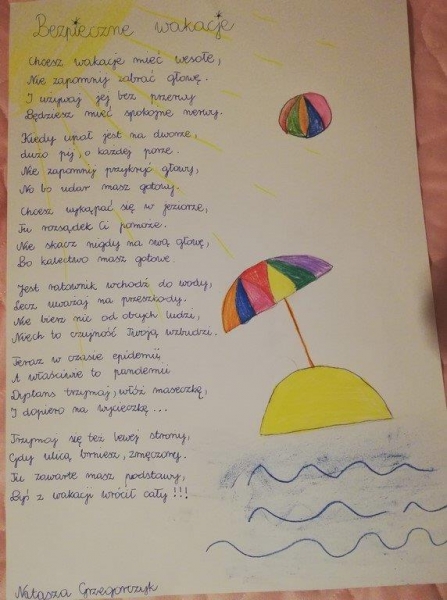 Bezpieczne wakacje
Chcesz wakacje mieć wesołe,
Nie zapomnij zabrać głowę.
I używaj jej bez przerwy
Będziesz mieć spokojne nerwy.
Kiedy upał jest na dworze,
dużo pij, o każdej porze.
Nie zapomnij przykryć głowy,
No bo udar masz gotowy.
Chcesz wykąpać się w jeziorze,
Tu rozsądek Ci pomoże.
Nie skacz nigdy na swą głowę,
Bo kalectwo masz gotowe.
Jest ratownik wchodź do wody,
Lecz uważaj na przeszkody.
Nie bierz nic od obcych ludzi,
Niech to czujność Twoją wzbudzi.
Teraz w czasie epidemii
A właściwie to pandemii
Dystans trzymaj, włóż maseczkę,
I dopiero na wycieczkę...
Trzymaj się też lewej strony,
Gdy ulicą brniesz, zmęczony.
Tu zawarte masz podstawy,
Byś z wakacji wrócił cały!!!
Natasza Grzegorczyk